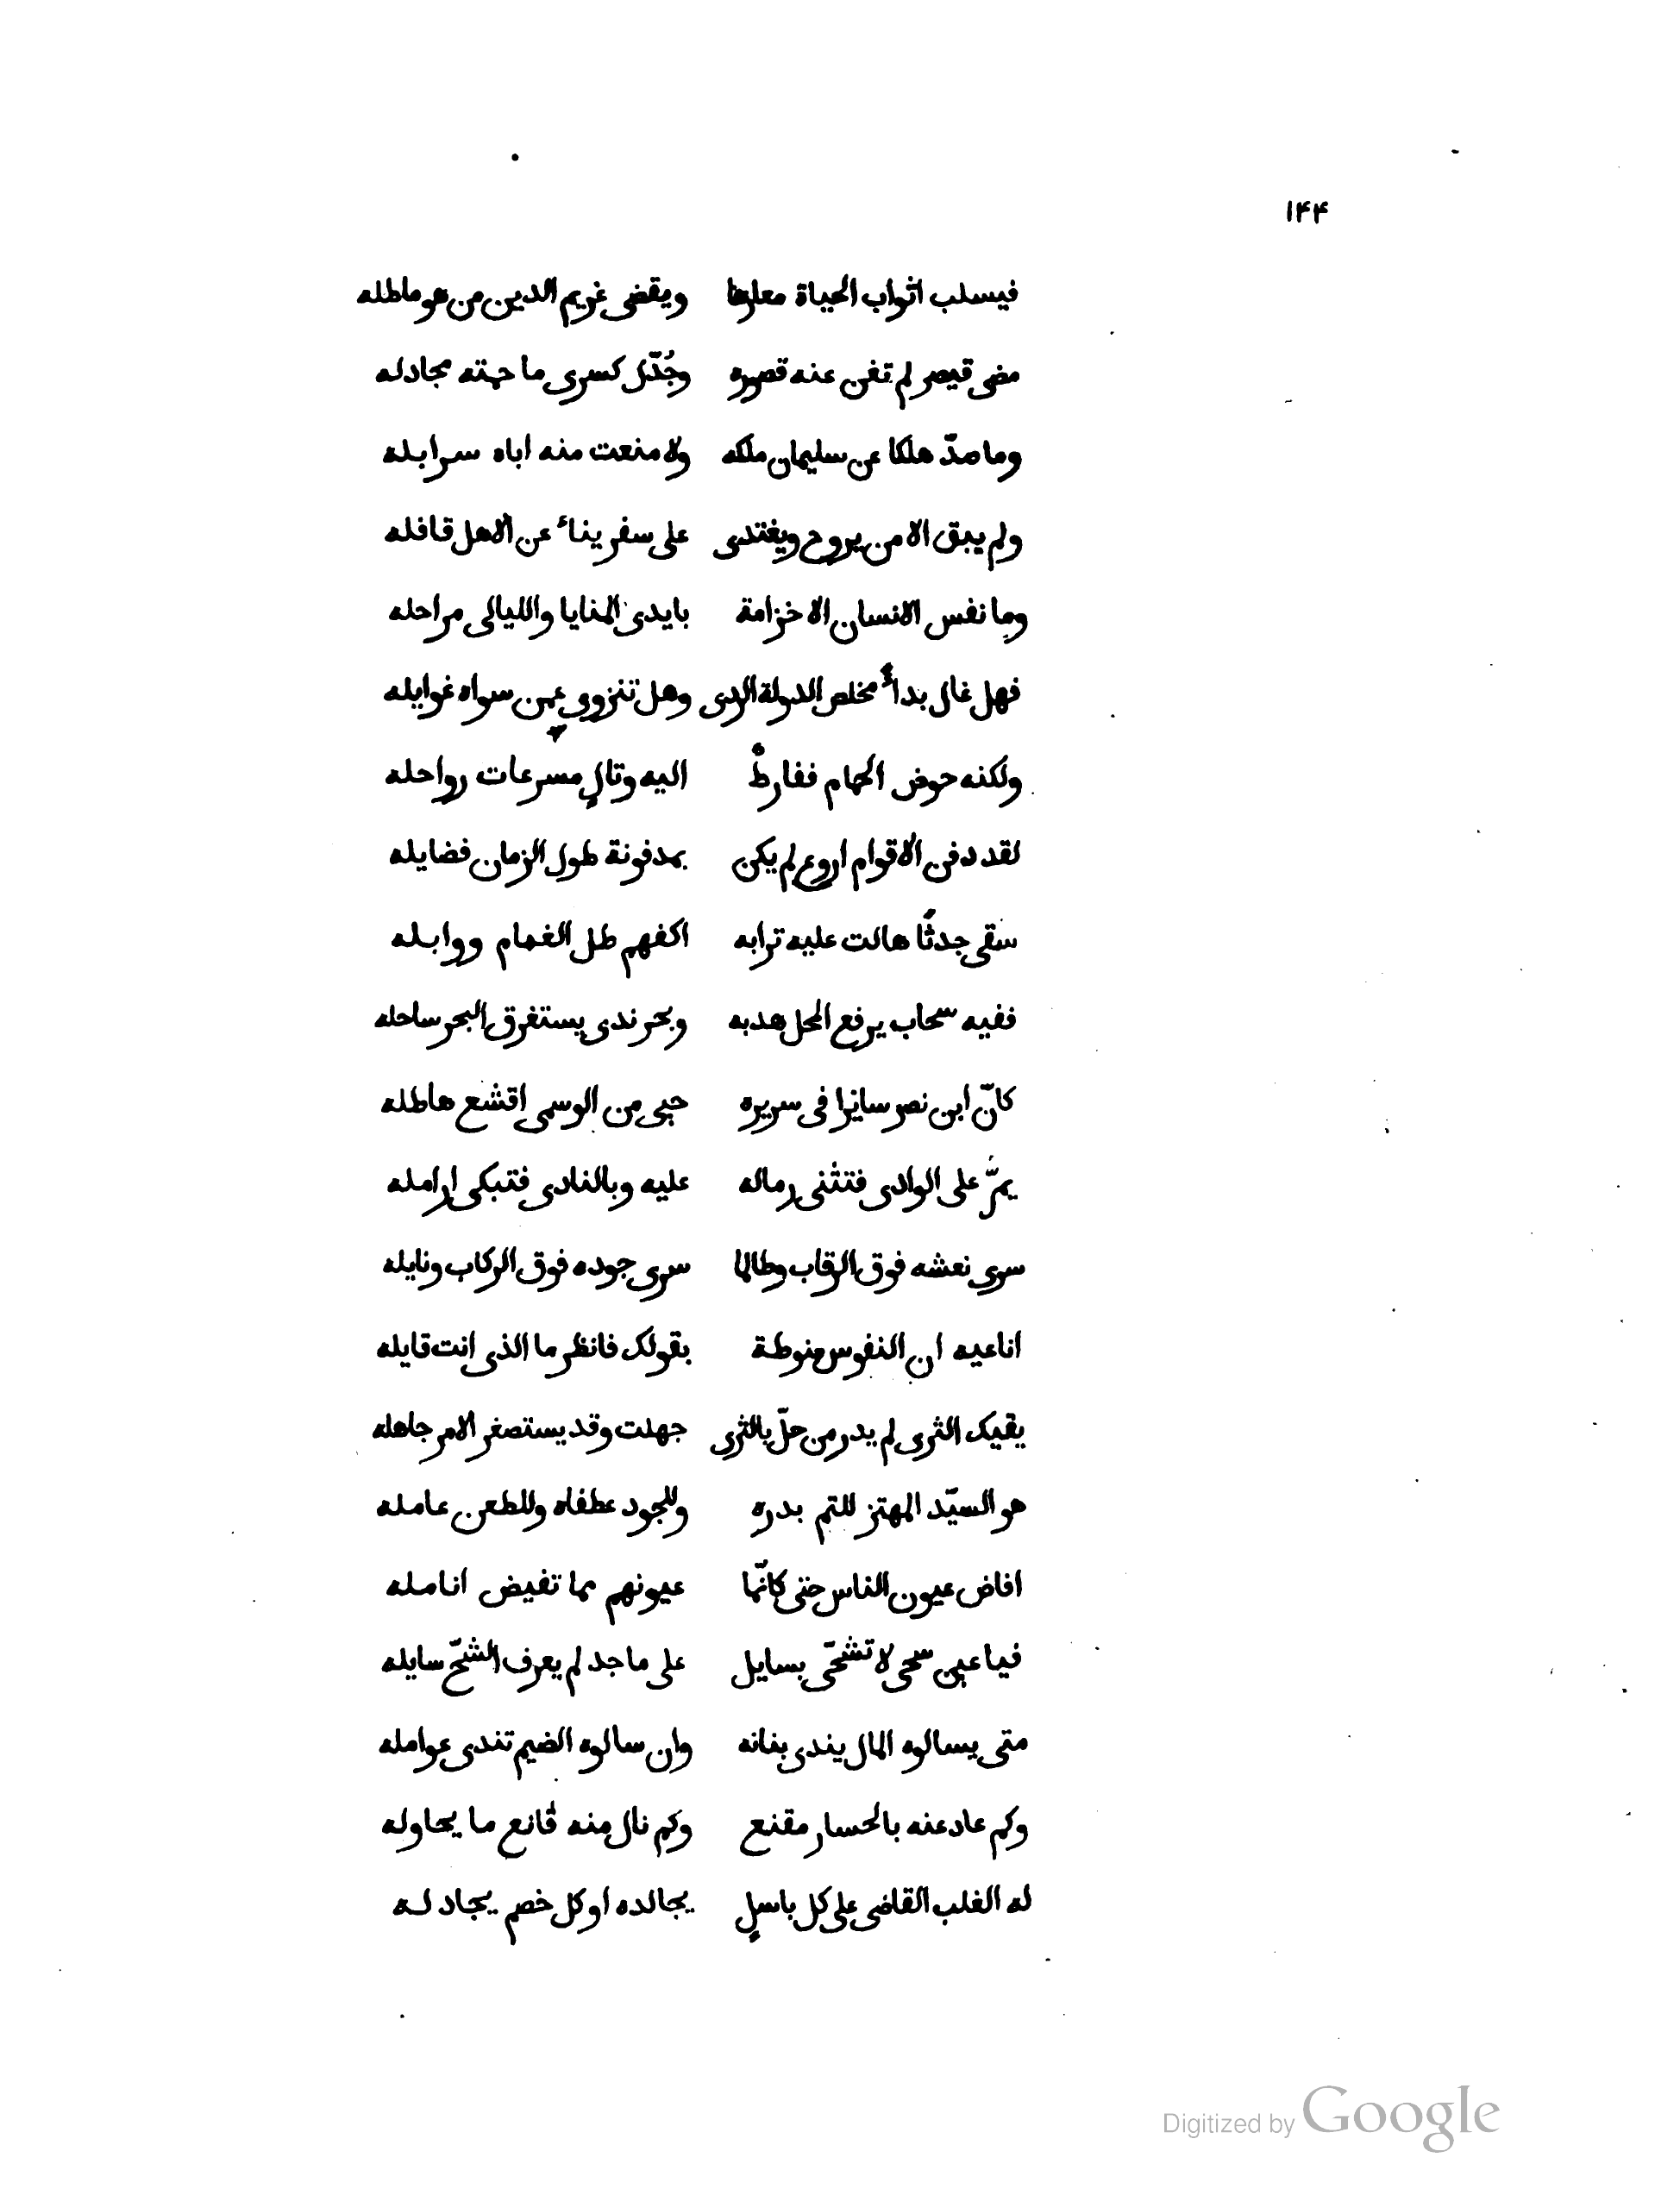 ١۴۴
فيسلب اثواب الحياة معارها ويقضى غريم الدين من هو ماطله
مضى قيصر لم تغن عنه قصوره وجُدّل كسرى ما حمته مجادله
وما صدّ هلكا عن سليمان ملكه ولا منعت منه اباه سرابله
ولم يبق الا من يروح ويغتدى على سفر يناءُ عن الاهل قافله
وما نفس الانسان الا خزامة بايدى المنايا والليالى مراحله
فهل غال بداءً مخلص الدولة الردى وهل تنزوى عمن سواه غوايله
ولكنه حوض الحمام ففارطٌ اليه وتالٍ مسرعات رواحله
لقد دفن الاقوام اروع لم يكن بمدفونة طول الزمان فضايله
سقى جدثًا هالت عليه ترابه اكفهم طل الغمام ووابله
ففيه سحاب يرفع المحل هدبه وبحر ندى يستغرق البحر ساحله
كانّ ابن نصر سايرا فى سريره حبى من الوسمى اقشع هاطله
يمرّ على الوادى فتثنى رماله عليه وبالنادى فتبكى ارامله
سرى نعشه فوق الرقاب وطالما سرى جوده فوق الركاب ونايله
اناعيه ان النفوس منوطة بقولك فانظر ما الذى انت قايله
بفيك الثرى لم يدر من حلّ بالثرى جهلت وقد يستصغر الامر جاهله
هو السيّد المهتز للتم بدره وللجود عطفاه وللطعن عامله
افاض عيون الناس حتى كانّما عيونهم مما تفيض انامله
فيا عين سحى لا تشحّى بسايل على ماجد لم يعرف الشحّ سايله
متى يسالوه المال يندى بنانه وان سالوه الضيم تندى عوامله
وكم عاد عنه بالحسار مقنع وكم نال منه قانع ما يحاوله
له الغلب القاضى على كل باسلٍ يجالده او كل خصم يجادله
Digitized by Google